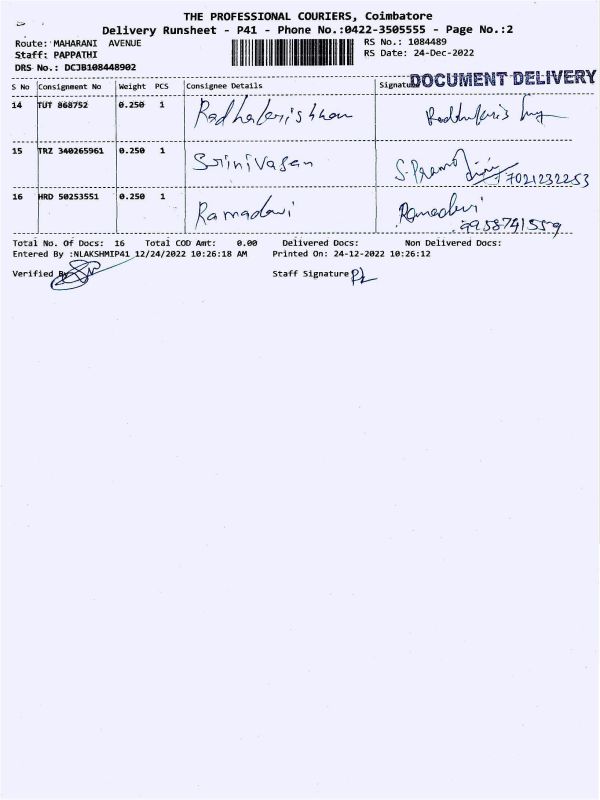 THE PROFESSIONAL COURIERS, Coimbatore
Delivery Runsheet - P41 - Phone No.:0422-3505555 - Page No.:2
Route: MAHARANI AVENUE
RS No.: 1084489
Staff: PAPPATHI
RS Date: 24-Dec-2022
DRS No.: DCJB108448902
DOCUMENT DELIVERY
S No Consignment No Weight PCS Consignee Details Signature
14 TUT 868752 0.250 1 Radhakrishnan
15 TRZ 340265961 0.250 1 Srinivasan S. 7021232253
16 HRD 50253551 0.250 1 Ramadevi Ramadevi
9958741559
Total No. Of Docs: 16 Total COD Amt: 0.00 Delivered Docs: Non Delivered Docs:
Entered By :NLAKSHMIP41 12/24/2022 10:26:18 AM Printed On: 24-12-2022 10:26:12
Verified By Staff Signature